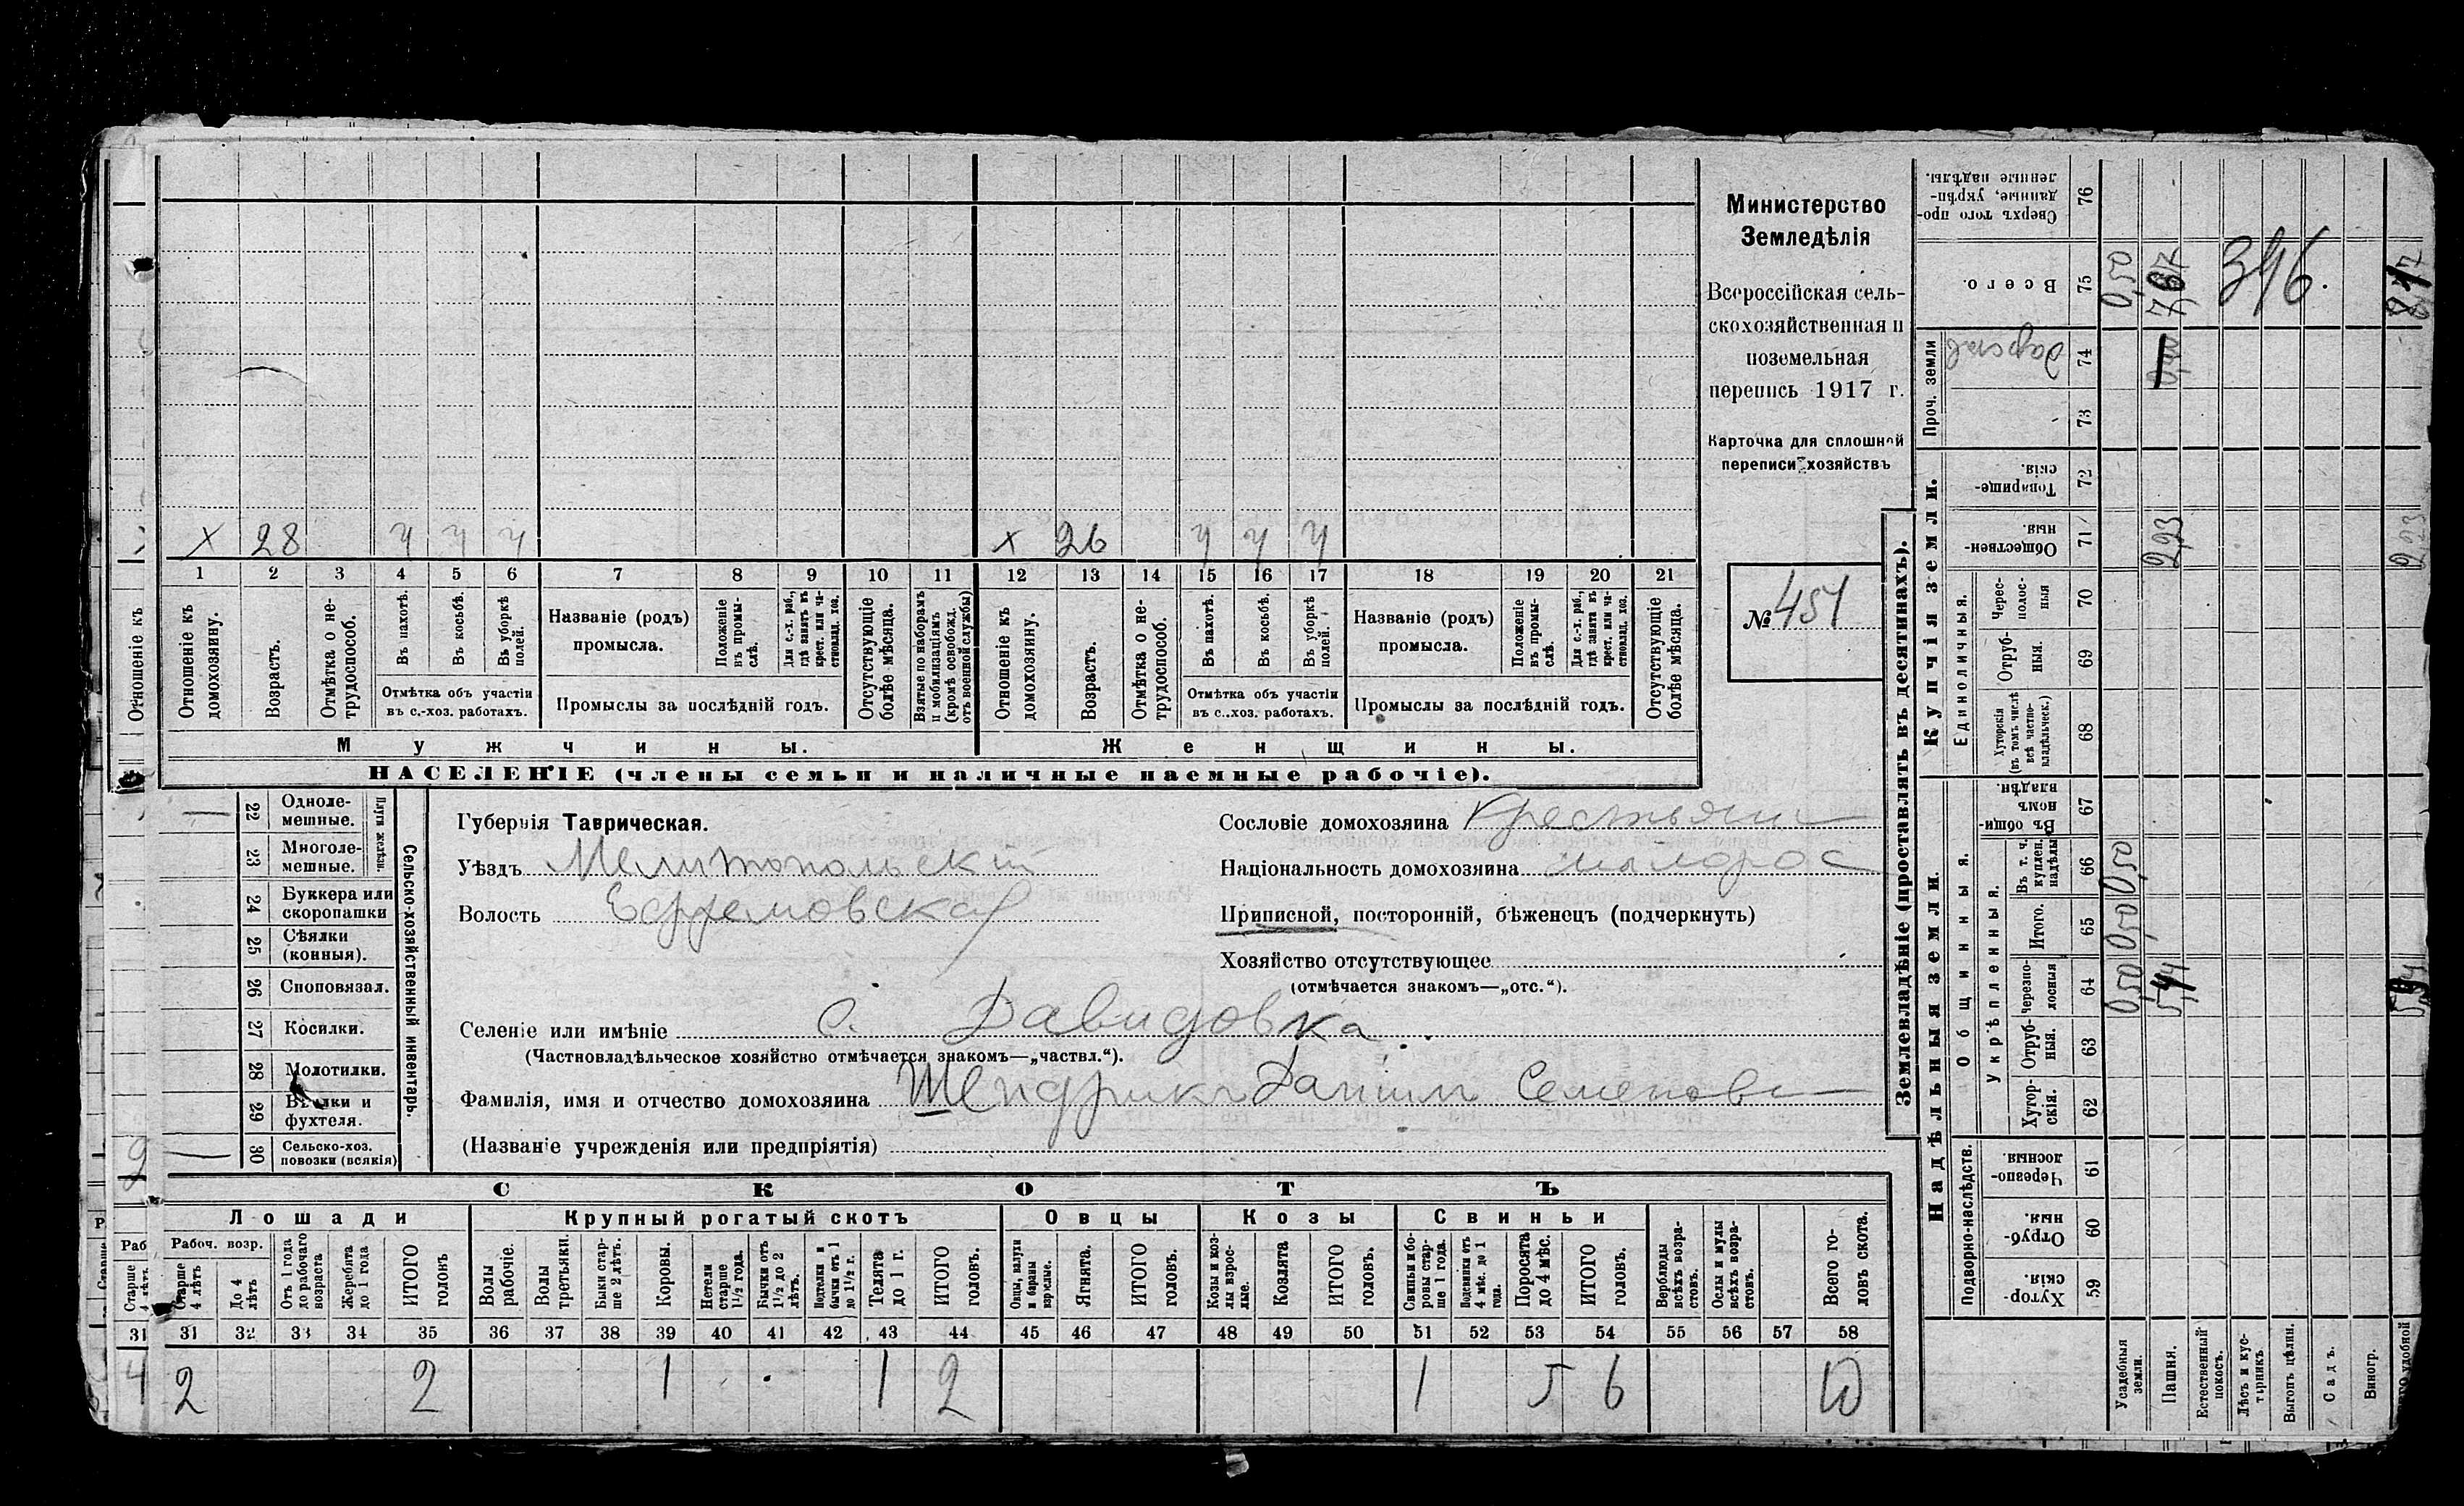 Министерство
Земледѣлія
Всероссійская сель-
скохозяйственная и
поземельная
перепись 1917 г.
Карточка для сплошной
переписи хозяйствъ
№ 451
х 28 ч ч ч х 26 ч ч ч
1 2 3 4 5 6 7 8 9 10 11 12 13 14 15 16 17 18 19 20 21
Отношеніе къ
Отношеніе къ домохозяину.
Возрастъ.
Отмѣтка о не-трудоспособ.
Въ пахотѣ.
Въ косьбѣ.
Въ уборкѣ полей.
Отмѣтка объ участіи
въ с.-хоз. работахъ.
Названіе (родъ)
промысла.
Положеніе въ промы-слѣ.
Для с.-х. раб., гдѣ занятъ въ крест. или ча-стновлад. хоз.
Промыслы за послѣдній годъ.
Отсутствующіе болѣе мѣсяца.
Взятые по наборамъ и мобилизаціямъ (кромѣ освобожд. отъ военной службы)
Отношеніе къ домохозяину.
Возрастъ.
Отмѣтка о не-трудоспособ.
Въ пахотѣ.
Въ косьбѣ.
Въ уборкѣ полей.
Отмѣтка объ участіи
въ с.-хоз. работахъ.
Названіе (родъ)
промысла.
Положеніе въ промы-слѣ.
Для с.-х. раб., гдѣ занята въ крест. или ча-стновлад. хоз.
Промыслы за послѣдній годъ.
Отсутствующіе болѣе мѣсяца.
Мужчины. Женщины.
НАСЕЛЕНІЕ (члены семьи и наличные наемные рабочіе).
22 Одноле-мешные.
23 Многоле-мешные.
Плуги желѣзн.
24 Буккера или скоропашки
25 Сѣялки (конныя).
26 Споповязал.
27 Косилки.
28 Молотилки.
29 Вѣялки и фухтеля.
30 Сельско-хоз. повозки (всякія)
Сельско-хозяйственный инвентарь.
Губернія Таврическая.
Уѣздъ Мелитопольскій
Волость Ефремовская
Селеніе или имѣніе с. Давидовка
(Частновладѣльческое хозяйство отмѣчается знакомъ—„частвл.“).
Фамилія, имя и отчество домохозяина Шендрикъ Данилъ Семенов
(Названіе учрежденія или предпріятія)
Сословіе домохозяина Крестьянин
Національность домохозяина малорос
Приписной, посторонній, бѣженец (подчеркнуть)
Хозяйство отсутствующее
(отмѣчается знакомъ—„отс.“).
СКОТЪ
Лошади Крупный рогатый скотъ Овцы Козы Свиньи
Рабоч. возр.
Старше 4 лѣтъ
До 4 лѣтъ
Отъ 1 года до рабочаго возраста
Жеребята до 1 года
ИТОГО головъ
Волы рабочіе.
Волы третьяки.
Быки стар-ше 2 лѣтъ.
Коровы.
Нетели старше 1½ года.
Бычки отъ 1½ до 2 лѣтъ.
Подтелки и бычки отъ 1 до 1½ г.
Телята до 1 г.
ИТОГО головъ.
Овцы, валухи и бараны взрослые.
Ягнята.
ИТОГО головъ.
Козы и коз-лы взрос-лые.
Козлята
ИТОГО головъ.
Свиньи и бо-ровы стар-ше 1 года.
Подсвинки отъ 4 мѣс. до 1 года.
Поросята до 4 мѣс.
ИТОГО головъ.
Верблюды всѣхъ возра-стовъ.
Ослы и мулы всѣхъ возра-стовъ.
Всего го-ловъ скота.
31 31 32 33 34 35 36 37 38 39 40 41 42 43 44 45 46 47 48 49 50 51 52 53 54 55 56 57 58
4 2 2 1 1 2 1 5 6 10
Землевладѣніе (проставлять въ десятинахъ).
Надѣльныя земли. Купчія земли. Проч. земли
Подворно-наслѣдств.
Общинныя.
Укрѣпленныя.
Единоличныя.
Хутор-скія. 59
Отруб-ныя. 60
Черезпо-лосныя 61
Хутор-скія. 62
Отруб-ныя. 63
Черезпо-лосныя 64
Итого. 65
Въ т. ч. куплен. надѣлы 66
Въ общи-номъ владѣн. 67
Хуторскія (въ томъ числѣ всѣ частно-владѣльческ.) 68
Отруб-ныя. 69
Черес-полос-ныя 70
Обществен-ныя. 71
Товарище-скія. 72
73
74
Всего. 75
Сверхъ того про-данные, укрѣп-ленные надѣлы. 76
Усадебныя земли. 0,50 0,50 0,50 0,50
Пашня. 2,23
Естественный покосъ.
Лѣсъ и кус-тарникъ
Выгонъ цѣлин.
Садъ.
Виногр.
удобной 2,23
396.